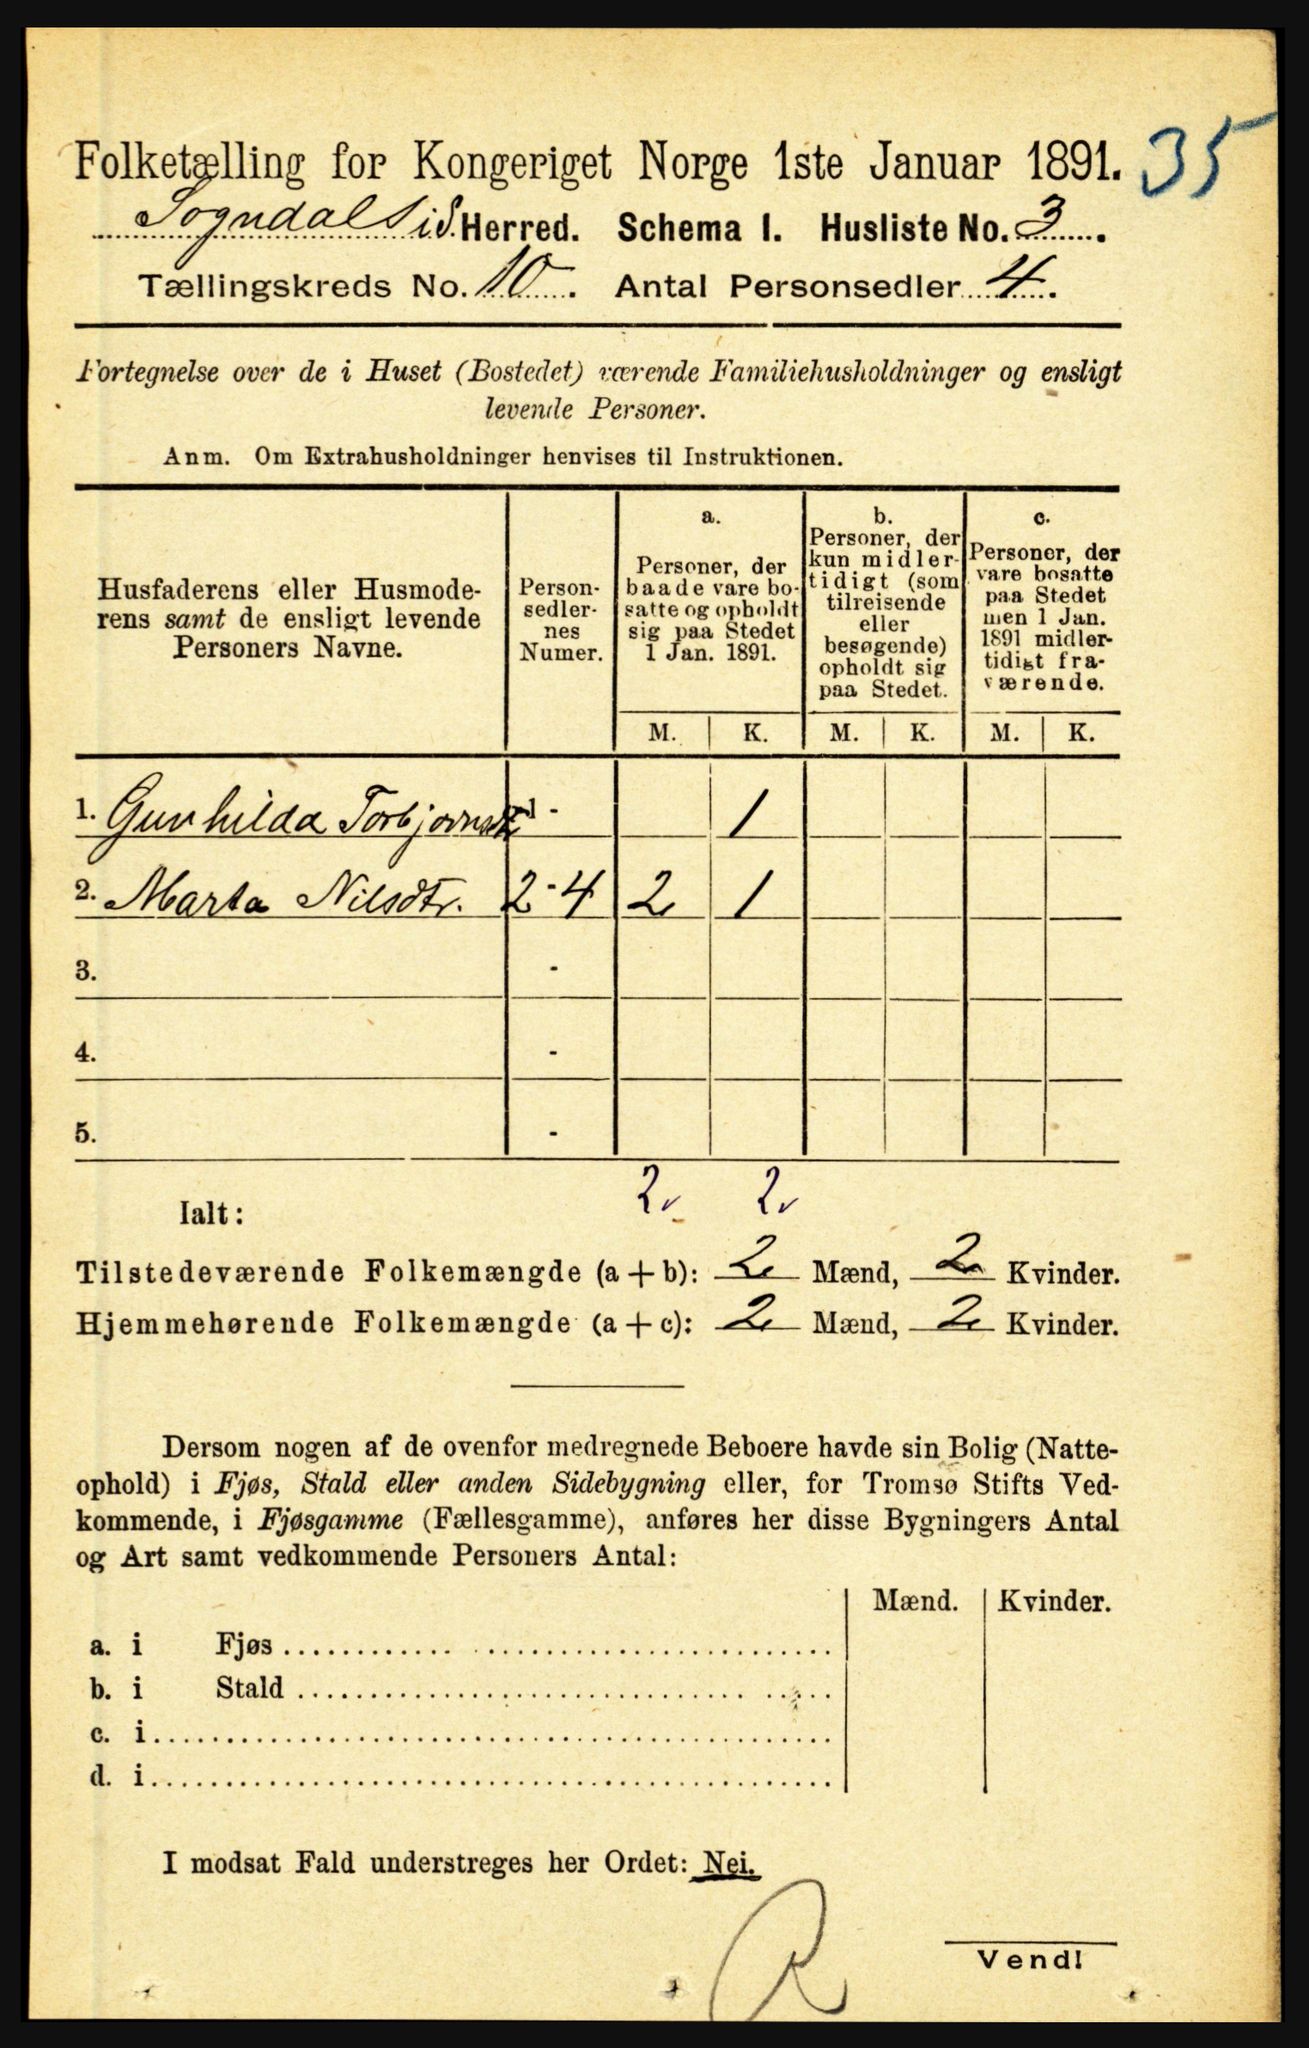 35
Folketælling for Kongeriget Norge 1ste Januar 1891.
Sogndal i S. Herred. Schema I. Husliste No. 3.
Tællingskreds No. 10. Antal Personsedler 4.
Fortegnelse over de i Huset (Bostedet) værende Familiehusholdninger og ensligt
levende Personer.
Anm. Om Extrahusholdninger henvises til Instruktionen.
Husfaderens eller Husmode-
rens samt de ensligt levende
Personers Navne.
Person-
sedler-
nes
Numer.
a.
Personer, der
baade vare bo-
satte og opholdt
sig paa Stedet
1 Jan. 1891.
b.
Personer, der
kun midler-
tidigt (som
tilreisende
eller
besøgende)
opholdt sig
paa Stedet.
c.
Personer, der
vare bosatte
paa Stedet
men 1 Jan.
1891 midler-
tidigt fra-
værende.
M. K. M. K. M. K.
1. Gunhilda Torbjørnsdtr 1 - 1
2. Marta Nilsdtr. 2 - 4 2 1
3. -
4. -
5. -
Ialt: 2 2
Tilstedeværende Folkemængde (a + b): 2 Mænd, 2 Kvinder.
Hjemmehørende Folkemængde (a + c): 2 Mænd, 2 Kvinder.
Dersom nogen af de ovenfor medregnede Beboere havde sin Bolig (Natte-
ophold) i Fjøs, Stald eller anden Sidebygning eller, for Tromsø Stifts Ved-
kommende, i Fjøsgamme (Fællesgamme), anføres her disse Bygningers Antal
og Art samt vedkommende Personers Antal:
Mænd. Kvinder.
a. i Fjøs
b. i Stald
c. i
d. i
I modsat Fald understreges her Ordet: Nei.
R
Vend!